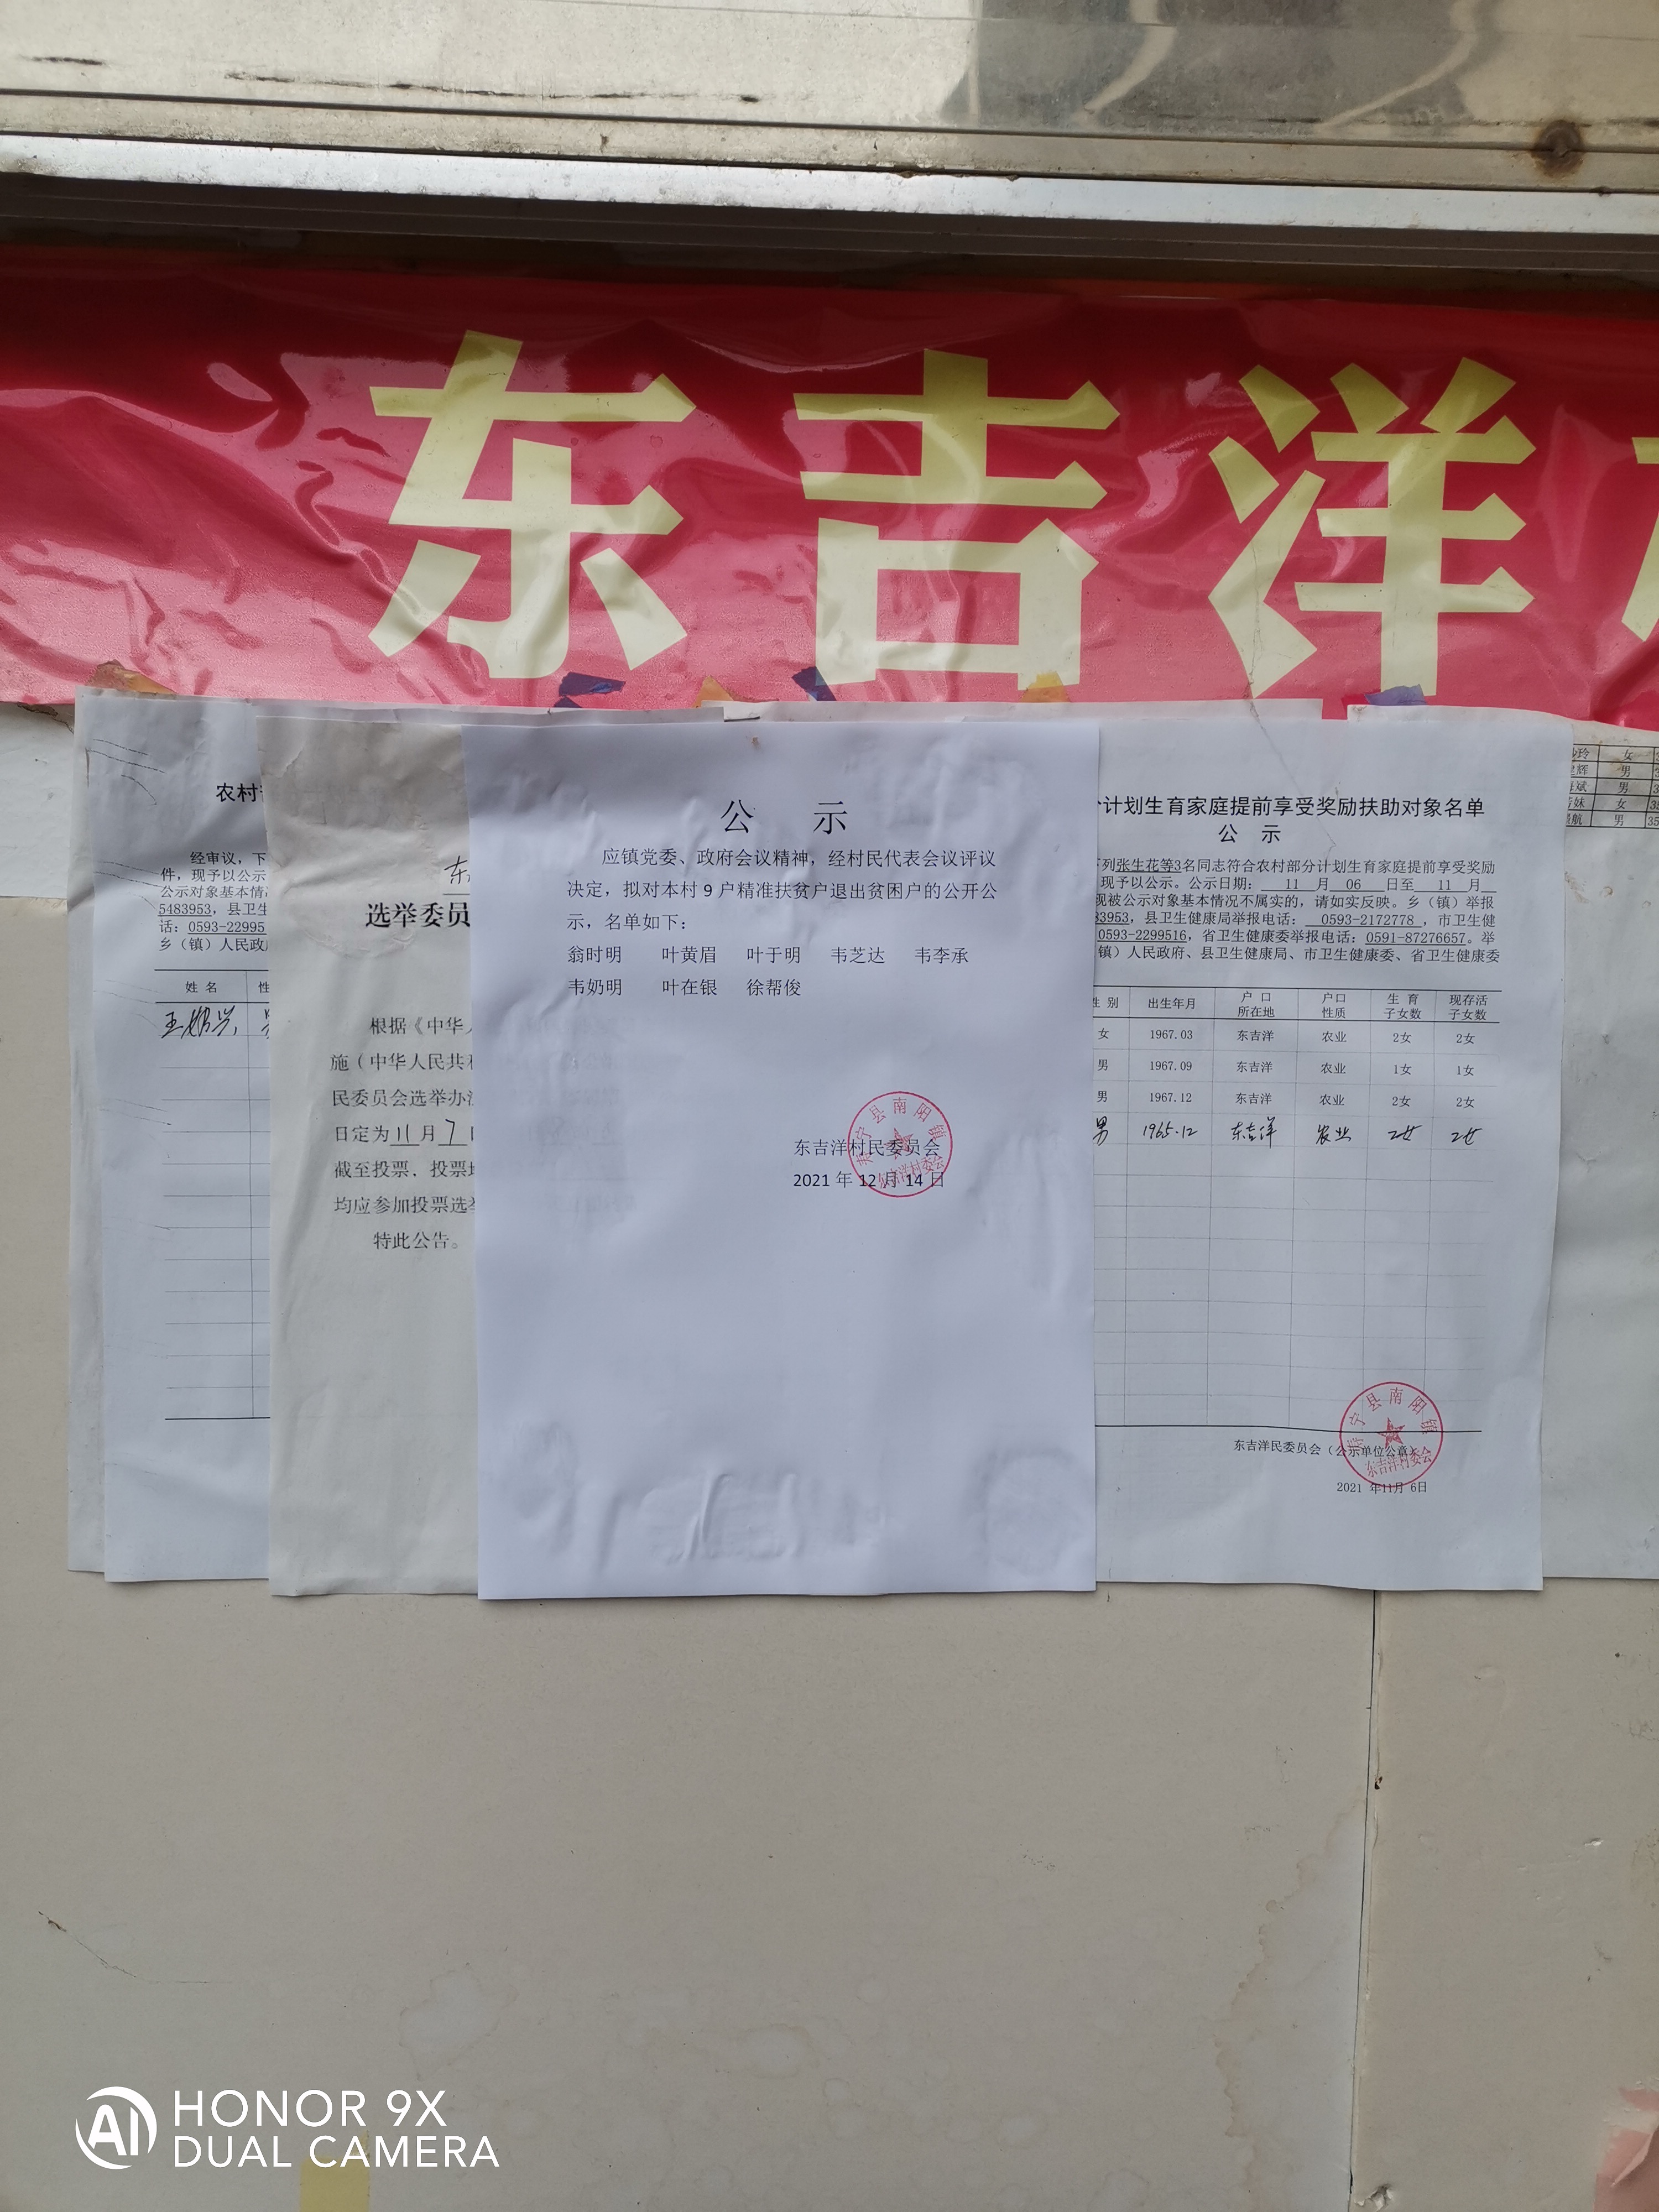 东吉洋
农村
经审议，下
件，现予以公示
公示对象基本情
5483953，县卫生
话：0593-22995
乡（镇）人民政
姓 名
东
选举委员
根据《中华人
施（中华人民共和
民委员会选举办法
日定为11月7日
截至投票，投票地
均应参加投票选举
特此公告。
公 示
应镇党委、政府会议精神，经村民代表会议评议
决定，拟对本村9户精准扶贫户退出贫困户的公开公
示，名单如下：
翁时明 叶黄眉 叶于明 韦芝达 韦李承
韦奶明 叶在银 徐帮俊
东吉洋村民委员会
2021 年 12 月 14 日
寿宁县南阳镇
东吉洋村委会
计划生育家庭提前享受奖励扶助对象名单
公 示
下列张生花等3名同志符合农村部分计划生育家庭提前享受奖励
现予以公示。公示日期： 11 月 06 日至 11 月
现被公示对象基本情况不属实的，请如实反映。乡（镇）举报
83953，县卫生健康局举报电话： 0593-2172778 ，市卫生健
0593-2299516，省卫生健康委举报电话：0591-87276657。举
镇）人民政府、县卫生健康局、市卫生健康委、省卫生健康委
性 别 出生年月 户 口 所在地 户口 性质 生 育 子女数 现存活 子女数
女 1967.03 东吉洋 农业 2女 2女
男 1967.09 东吉洋 农业 1女 1女
男 1967.12 东吉洋 农业 2女 2女
男 1965.12 东吉洋 农业 2女 2女
东吉洋民委员会（公示单位公章）
2021 年11月 6日
寿宁县南阳镇
东吉洋村委会
玲 女
辉 男
斌 男
妹 女
航 男 35
HONOR 9X
DUAL CAMERA